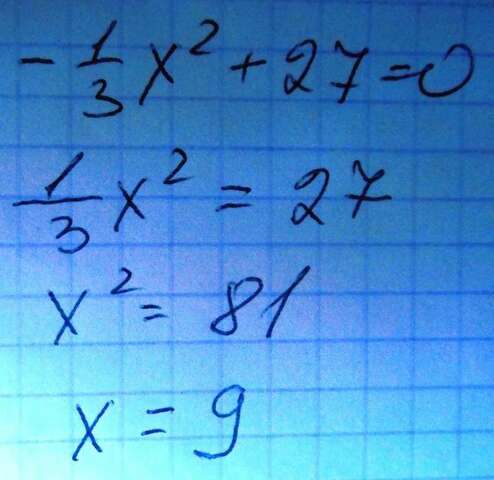 -1/3 x² + 27 = 0
1/3 x² = 27
x² = 81
x = 9